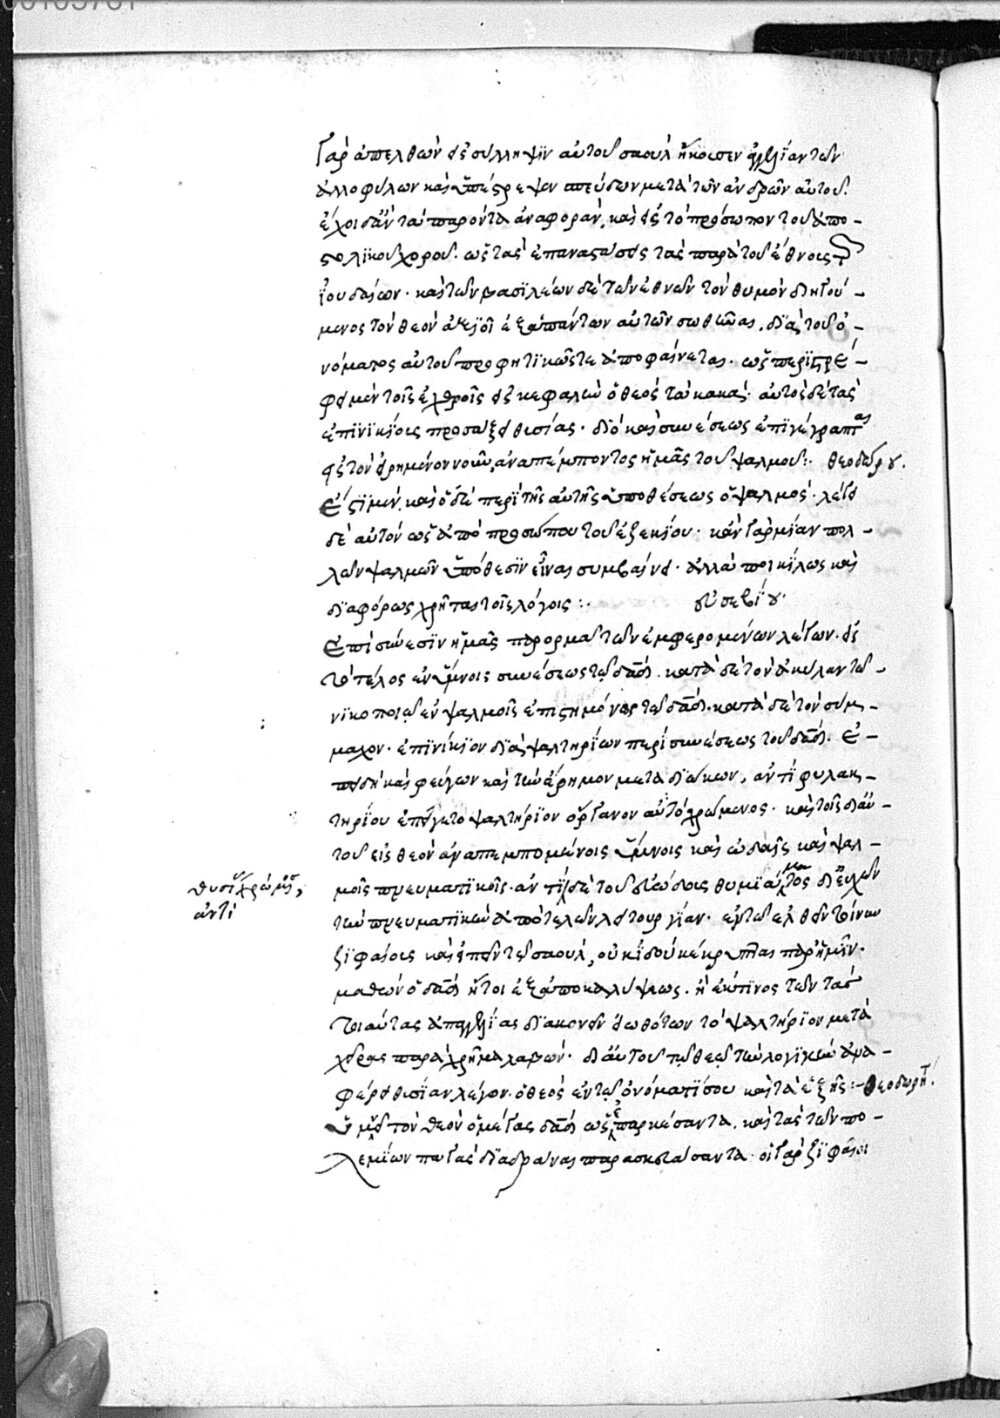 γὰρ ἀπελθὼν εἰς σύλληψιν αὐτοῦ σαοὺλ ἤκουσεν ἀγγελίαν τῶν
ἀλλοφύλων καὶ ὑπέστρεψεν σπεύδων μετὰ τῶν ἀνδρῶν αὐτοῦ.
ἔχοι δ' ἂν τὰ παρόντα ἀναφορὰν, καὶ εἰς τὸ πρόσωπον τοῦ ἀπο-
στολικοῦ χοροῦ. ὡς τὰς ἐπαναστάσεις τὰς παρὰ τοῦ ἔθνους τῶν
ἰουδαίων. καὶ τῶν βασιλέων δὲ τῶν ἐθνῶν τὸν θυμὸν διηγού-
μενος τὸν θεὸν ἀξιοῖ ἐξ ἁπάντων αὐτῶν σωθῆναι. διὰ τοῦ ὀ-
νόματος αὐτοῦ προφητικῶς τε ἀποφαίνεται. ὡς περιτρέ-
ψει μὲν τοῖς ἐχθροῖς εἰς κεφαλὴν ὁ θεὸς τὰ κακά. αὐτὸς δὲ τὰς
ἐπινικίους προσάξει θυσίας. διὸ καὶ συνέσεως ἐπιγέγραπται
εἰς τὸν εἰρημένον νοῦν, ἀναπέμποντος ἡμᾶς τοῦ ψαλμοῦ:. θεοδώρου.
Ἔστι μὲν καὶ ὅδε περὶ τῆς αὐτῆς ὑποθέσεως ὁ ψαλμός. λέγει
δὲ αὐτὸν ὡς ἀπὸ προσώπου τοῦ ἐζεκίου. κἂν γὰρ μίαν πολ-
λῶν ψαλμῶν ὑπόθεσιν εἶναι συμβαίνει. ἀλλὰ ποικίλως καὶ
διαφόρως χρῆται τοῖς λόγοις:. εὐσεβίου.
Ἐπὶ σύνεσιν ἡμᾶς παρορμᾷ τῶν ἐμφερομένων λέγων. εἰς
τὸ τέλος ἐν ὕμνοις συνέσεως τῷ δαδ. κατὰ δὲ τὸν ἀκύλαν τῷ
νικοποιῷ ἐν ψαλμοῖς ἐπιστήμονος τῷ δαδ. κατὰ δὲ τὸν σύμ-
μαχον. ἐπινίκιον διὰ ψαλτηρίων περὶ συνέσεως τοῦ δαδ. ἐ-
πειδὴ καὶ φεύγων καὶ τὴν ἔρημον μεταδιώκων, ἀντὶ φυλακ-
τηρίου ἐπήγετο ψαλτήριον ὄργανον αὐτὸ χρώμενος. καὶ τοῖς δι' αὐ-
τοῦ εἰς θεὸν ἀναπεμπομένοις ὕμνοις καὶ ὠδαῖς καὶ ψαλ-
θυσίας χρώμενος,
ἀντὶ
μοῖς πνευματικοῖς. ἀντὶ δὲ τοῦ εὐώδους θυμιάματος δι' εὐχῶν
τὴν πνευματικὴν ἀποτελῶν λειτουργίαν. ἐν τῷ ἐλθεῖν τίνων
ζιφαίους καὶ εἰπεῖν τῷ σαούλ, οὐκ ἰδοὺ κέκρυπται παρ' ἡμῖν.
μαθὼν ὁ δαδ ἤτοι ἐξ ἀποκαλύψεως. ἢ ἐκ τίνος τῶν τὰς
τοιαύτας ἀπαγγελίας διακονεῖν εἰωθότων τὸ ψαλτήριον μετὰ
χεῖρας παραχρῆμα λαβών. δι' αὐτοῦ τῷ θεῷ τὴν λογικὴν ἀνα-
φέρει θυσίαν λέγων. ὁ θεὸς ἐν τῷ ὀνόματί σου καὶ τὰ ἑξῆς:- θεοδωρήτ.
Ὑμνεῖ τὸν θεὸν ὁ μέγας δαδ ὡς ἐπαρκέσαντα. καὶ τὰς τῶν πο-
λεμίων πάγας διαδρᾶναι παρασκευάσαντα. οἱ γὰρ ζιφαῖοι